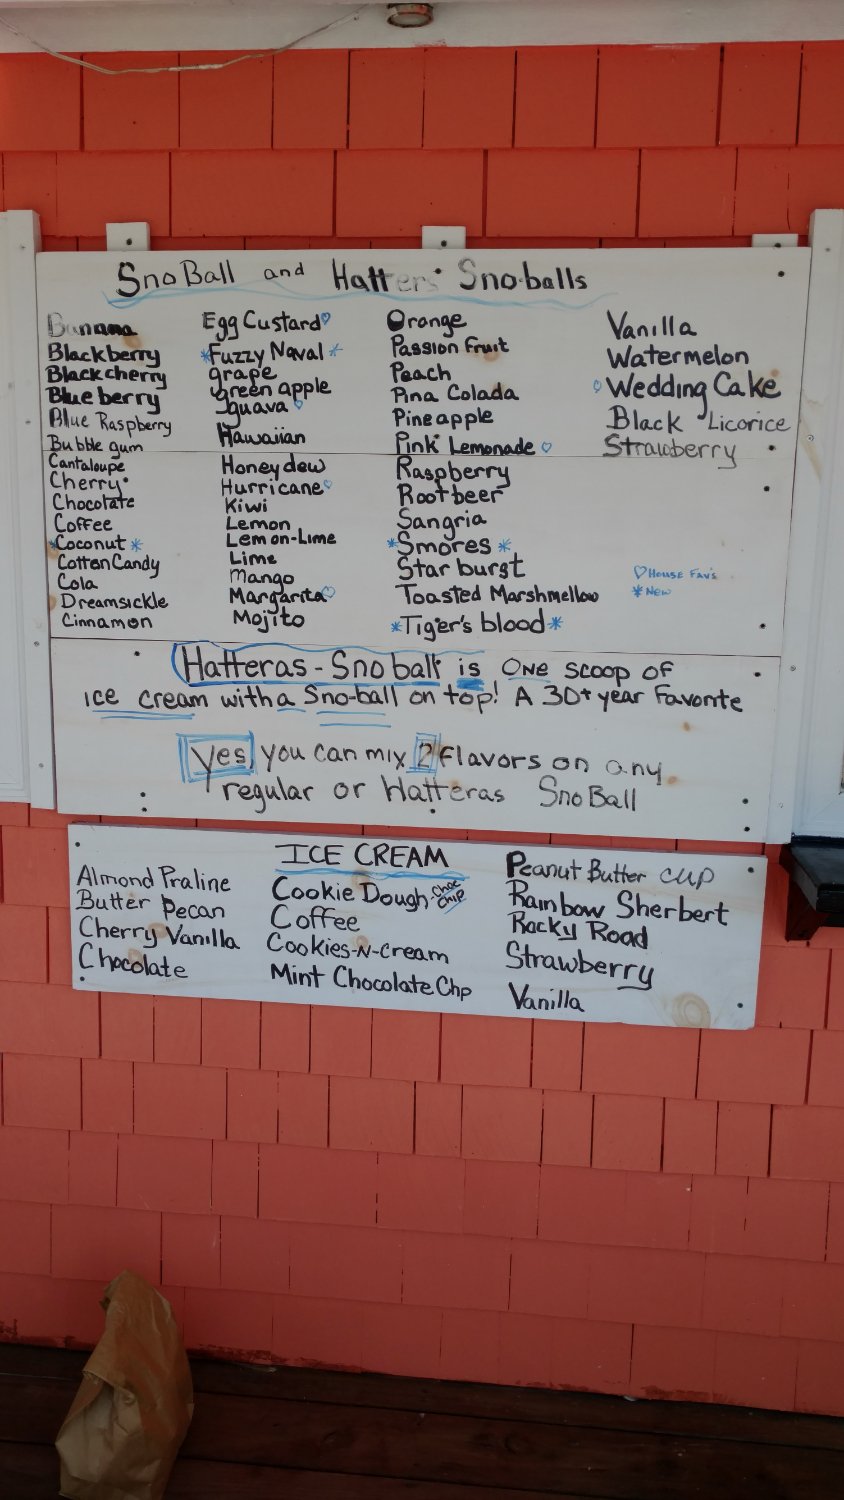 SnoBall and Hatters Sno-balls
Banana
Blackberry
Blackcherry
Blueberry
Blue Raspberry
Bubble gum
Cantaloupe
Cherry
Chocolate
Coffee
*Coconut*
Cotton Candy
Cola
Dreamsickle
Cinnamon
Egg Custard♡
*Fuzzy Naval*
grape
green apple
Iguava♡
Hawaiian
Honeydew
Hurricane♡
Kiwi
Lemon
Lemon-Lime
Lime
Mango
Margarita♡
Mojito
Orange
Passion Fruit
Peach
Pina Colada
Pineapple
Pink Lemonade♡
Raspberry
Rootbeer
Sangria
*Smores*
Starburst
Toasted Marshmellow
*Tiger's blood*
Vanilla
Watermelon
♡Wedding Cake
Black Licorice
Strawberry
♡House Fav's
*New
Hatteras-Snoball is one scoop of
ice cream with a Sno-ball on top! A 30+ year Favorite
Yes, you can mix 2 flavors on any
regular or Hatteras SnoBall
ICE CREAM
Almond Praline
Butter Pecan
Cherry Vanilla
Chocolate
Cookie Dough-Choc Chip
Coffee
Cookies-N-Cream
Mint Chocolate Chp
Peanut Butter cup
Rainbow Sherbert
Rocky Road
Strawberry
Vanilla